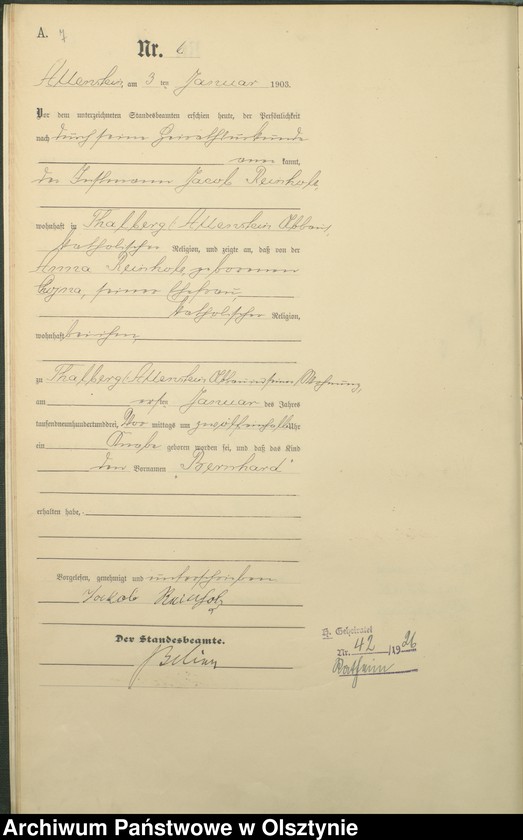 A. 7
Nr. 6
Allenstein, am 3 ten Januar 1903.
Vor dem unterzeichneten Standesbeamten erschien heute, der Persönlichkeit
nach durch seine Heirathsurkunde
aner kannt,
der Instmann Jacob Reinholz
wohnhaft in Thalberg / Allenstein Abbau,
katholischer Religion, und zeigte an, daß von der
Anna Reinholz geborenen
seiner Ehefrau,
katholischer Religion,
wohnhaft bei ihm,
zu Thalberg / Allenstein Abbau in seiner Wohnung,
am ersten Januar des Jahres
tausendneunhundertunddrei, Vor mittags um Uhr
ein Knabe geboren worden sei, und daß das Kind
den Vornamen "Bernhard"
erhalten habe.
Vorgelesen, genehmigt und unterschrieben
Jakob Reinholz
Der Standesbeamte.
A. Geheiratet
Nr. 42 /1926
Archiwum Państwowe w Olsztynie